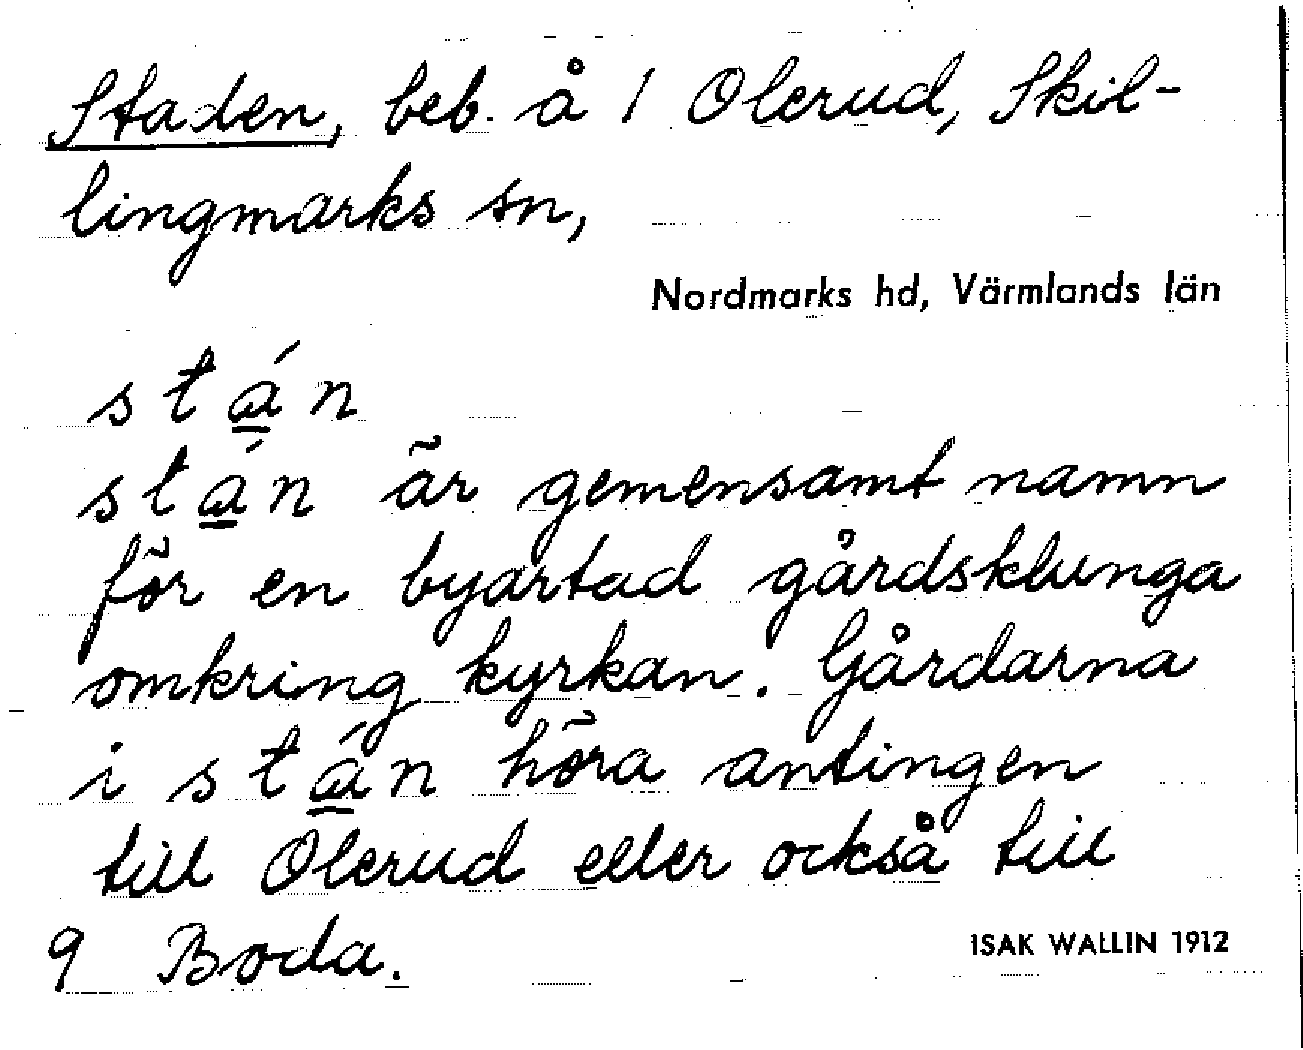 Staden, beb. å 1 Olerud, Skil-
lingmarks sn,
Nordmarks hd, Värmlands län
s t á̲ n
s t á̲ n är gemensamt namn
för en byartad gårdsklunga
omkring kyrkan. Gårdarna
i s t á̲ n höra antingen
till Olerud eller också till
9 Boda.
ISAK WALLIN 1912